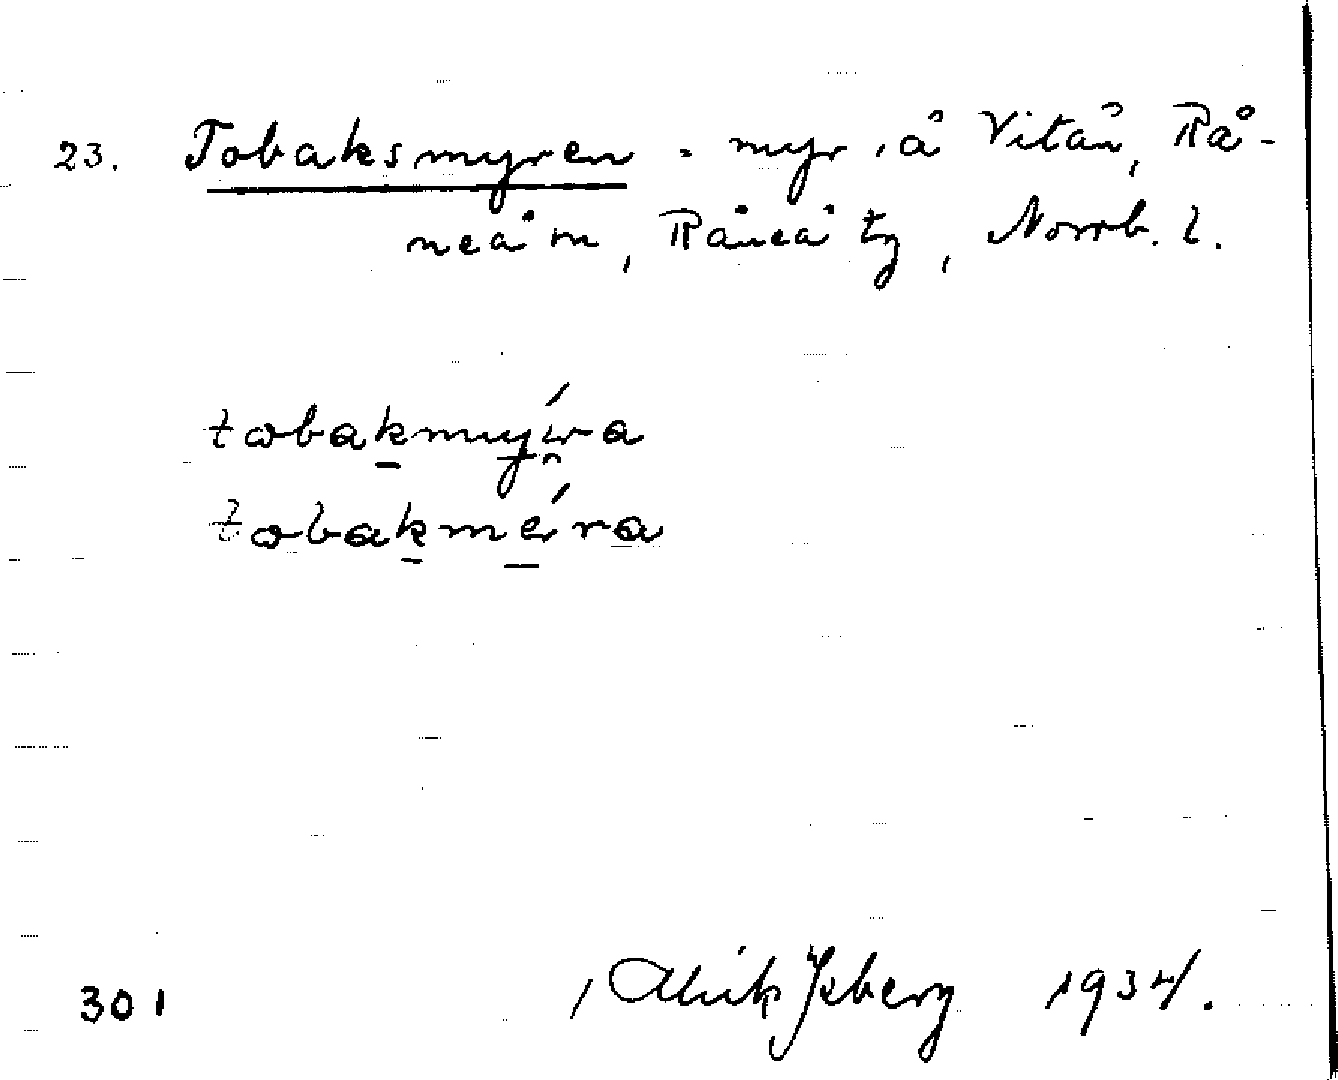 23. Tobaksmyren - myr, å Vitån, Rå-
neå sn, Råneå tg, Norrb. l.
tobakmyŕa
tobakméra
301 Alrik Isberg 1934.